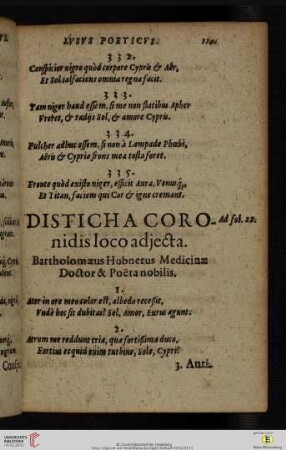 LVSVS POETICVS.
332.
Conspicior nigro quòd corpore Cypris & Aër,
Et Sol salfaciens omnia regna facit.
333.
Tam niger haud essem, si me non flatibus Apher
Vreret, & radijs Sol, & amore Cypris.
334.
Pulcher adhuc essem, si non à Lampade Phœbi,
Aëris & Cypriæ frons mea tosta foret.
335.
Fronte quòd existo niger, efficit Aura, Venusq́;,
Et Titan, faciem qui Cor & igne cremant.
DISTICHA CORO-
Ad fol. 22.
nidis loco adjecta.
Bartholomæus Hubnerus Medicinæ
Doctor & Poëta nobilis.
1.
Ater in ore meo color est, albedo recessit,
Vndè hoc sit dubitas? Sol, Amor, Eurus agunt.
2.
Atrum me reddunt tria, quæ fortissima duco,
Fortius ecquid enim turbine, Sole, Cypri?
3. Auri-